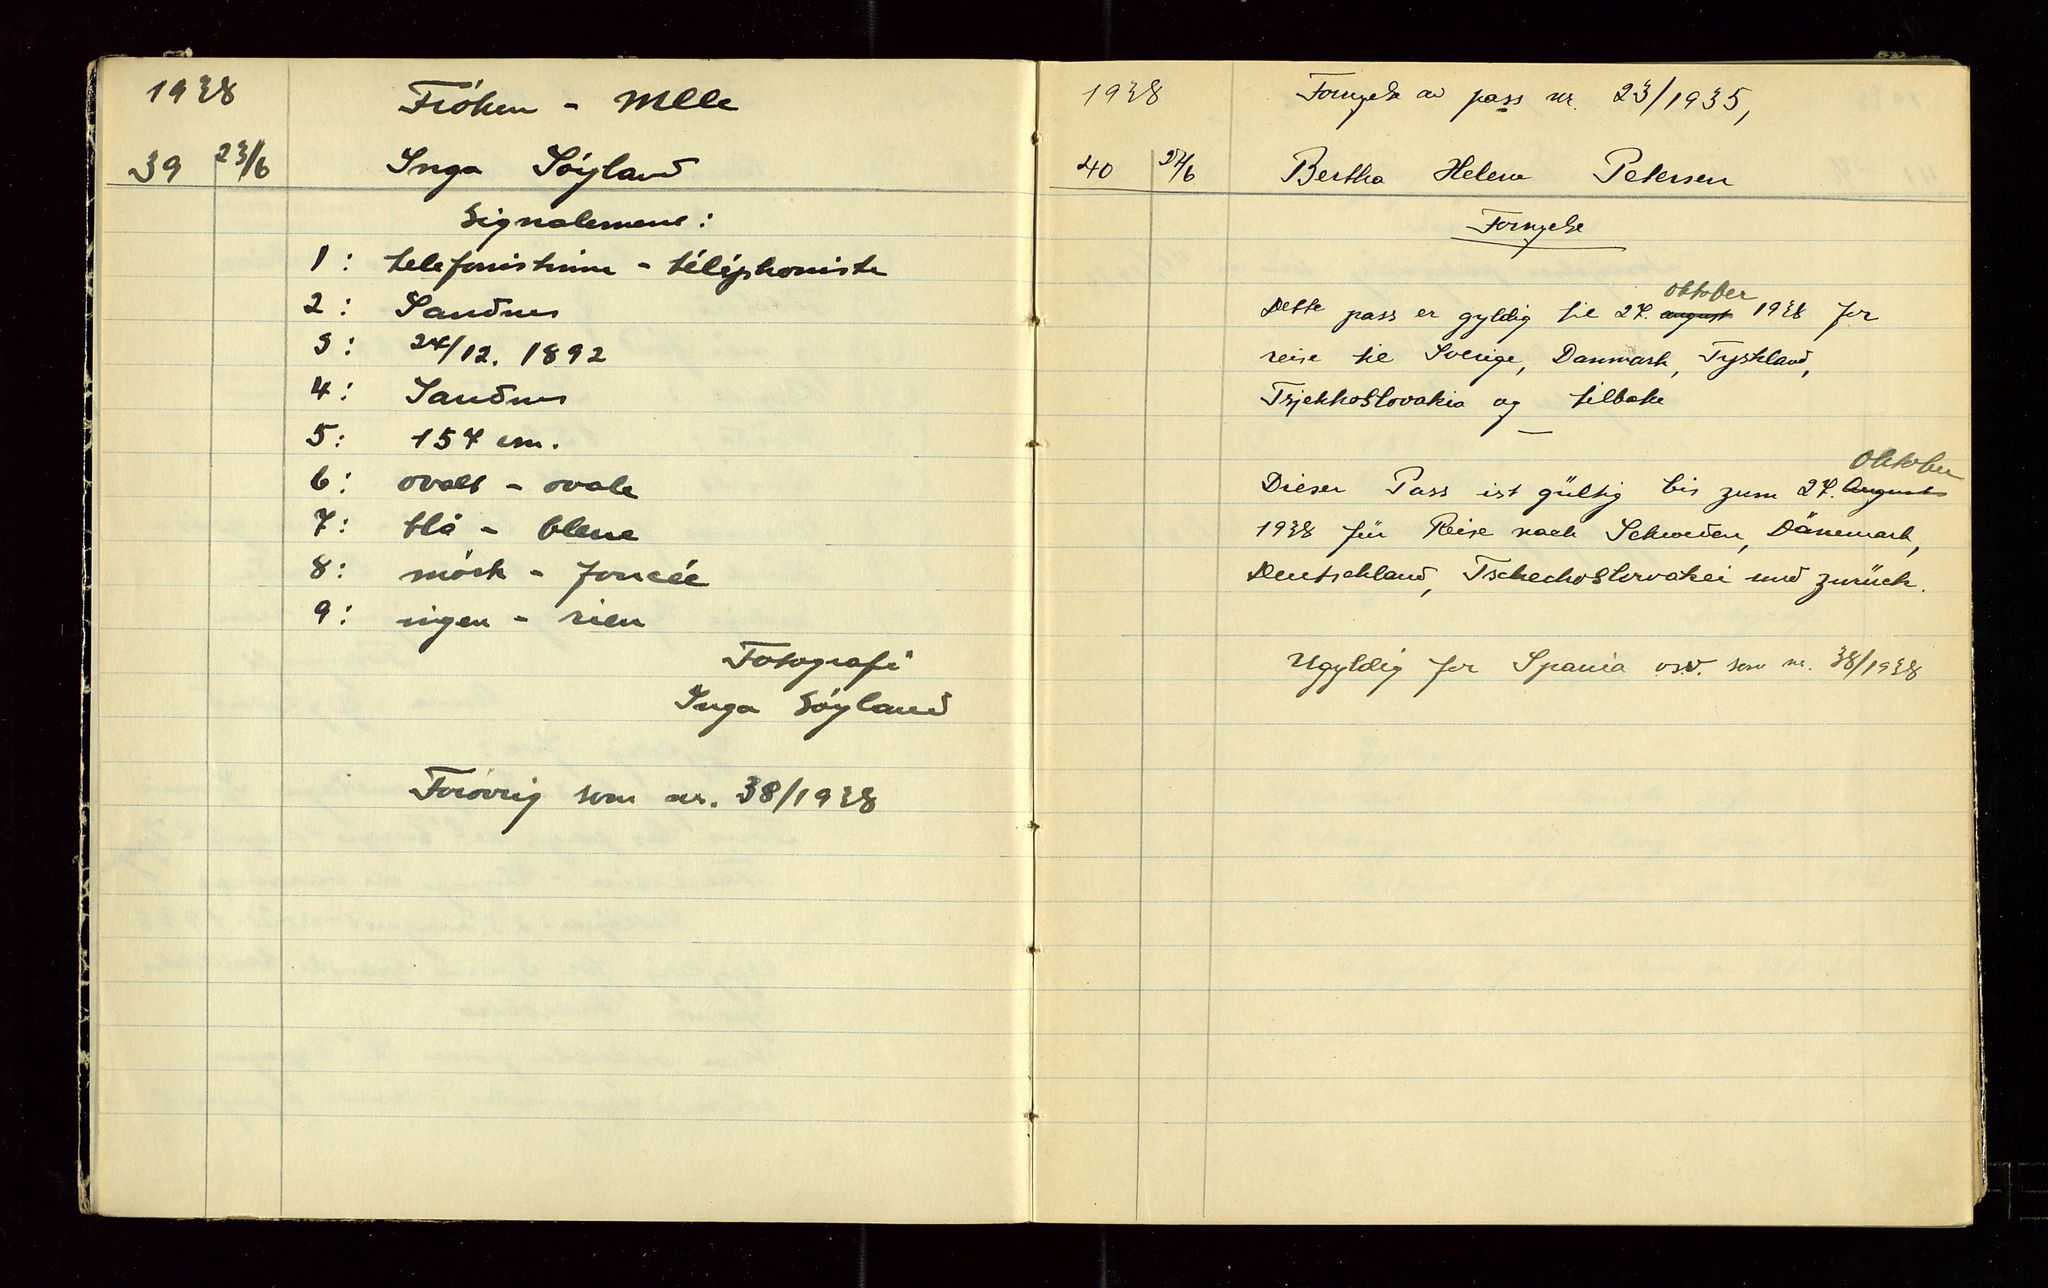 1938
Frøken - Mlle
39 23/6 Inga Søyland
Signalement:
1: telefonistinne - téléphoniste
2: Sandnes
3: 24/12. 1892
4: Sandnes
5: 157 cm.
6: ovalt - ovale
7: blå - bleue
8: mørk - foncée
9: ingen - rien
Fotografi
Inga Søyland
Forøvrig som nr. 38/1938
1938 Fornyelse av pass nr. 23/1935,
40 27/6 Bertha Helene Petersen
Fornyelse
oktober
Dette pass er gyldig til 27. august 1938 for
reise til Sverige, Danmark, Tyskland,
Tsjekkoslovakia og tilbake
Oktober
Dieser Pass ist gültig bis zum 27. Augusts
1938 für Reise nach Schweden, Dänemark,
Deutschland, Tschechoslovakei und zurück.
Ugyldig for Spania o.s.v. som nr. 38/1938